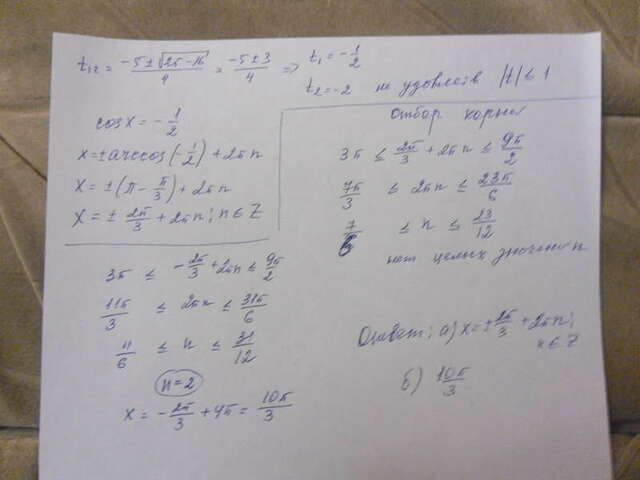 t₁,₂ = (-5 ± √(25-16))/4 = (-5 ± 3)/4 => t₁ = -1/2
t₂ = -2 не удовлетв |t| ≤ 1
cos x = -1/2
x = ± arccos(-1/2) + 2πn
x = ± (π - π/3) + 2πn
x = ± 2π/3 + 2πn; n ∈ Z
Отбор корней
3π ≤ 2π/3 + 2πn ≤ 9π/2
7π/3 ≤ 2πn ≤ 23π/6
7/6 ≤ n ≤ 23/12
нет целых значений n
3π ≤ -2π/3 + 2πn ≤ 9π/2
11π/3 ≤ 2πn ≤ 31π/6
11/6 ≤ n ≤ 31/12
n = 2
x = -2π/3 + 4π = 10π/3
Ответ: а) x = ± 2π/3 + 2πn;
n ∈ Z
б) 10π/3